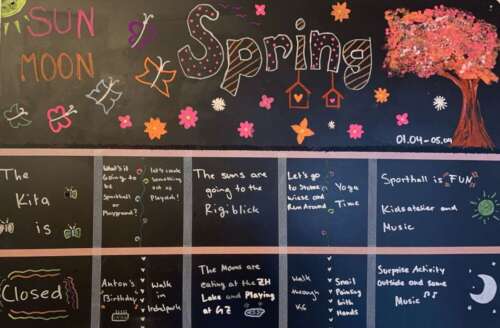 SUN
MOON
Spring
01.04-05.04
The
Kita
is
What's it
Going to
be
Sporthall
or
Playground?
Let's create
Something
out of
Playdoh!
The suns are
going to the
Rigiblick
Let's go
to Stolze
wiese and
Run Around
Yoga
Time
Sporthall is FUN
Kidsatelier and
Music
Closed
Anton's
Birthday
Walk
in
Irchelpark
The Moons are
eating at the ZH
Lake and Playing
at GZ
Walk
through
KG
Snail
Painting
with
Hands
Surprise Activity
outside and some
Music